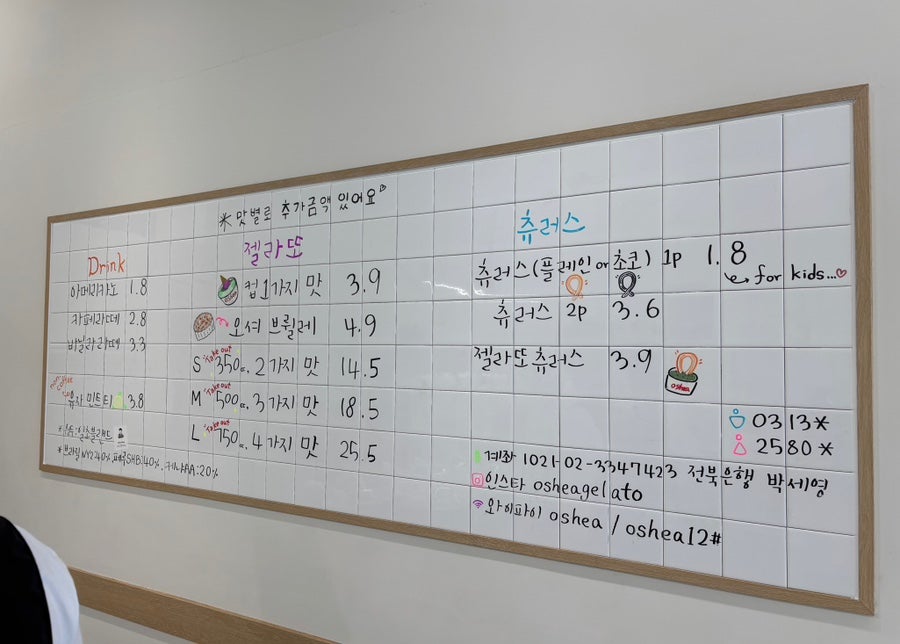 * 맛별로 추가금액 있어요
Drink
아메리카노 1.8
카페라떼 2.8
바닐라라떼 3.3
non-coffee
유자 민트티 3.8
*브라질NY2:40%, 페루SHB:40%, 케냐AA:20%
젤라또
컵 1가지 맛 3.9
오셔 브륄레 4.9
S take out 350cc. 2가지 맛 14.5
M take out 500cc. 3가지 맛 18.5
L take out 750cc. 4가지 맛 25.5
츄러스
츄러스(플레인 or 초코) 1p 1.8
for kids...
츄러스 2p 3.6
젤라또츄러스 3.9
oshea
0313*
2580*
계좌 1021-02-3347423 전북은행 박세영
인스타 osheagelato
와이파이 oshea / oshea12#